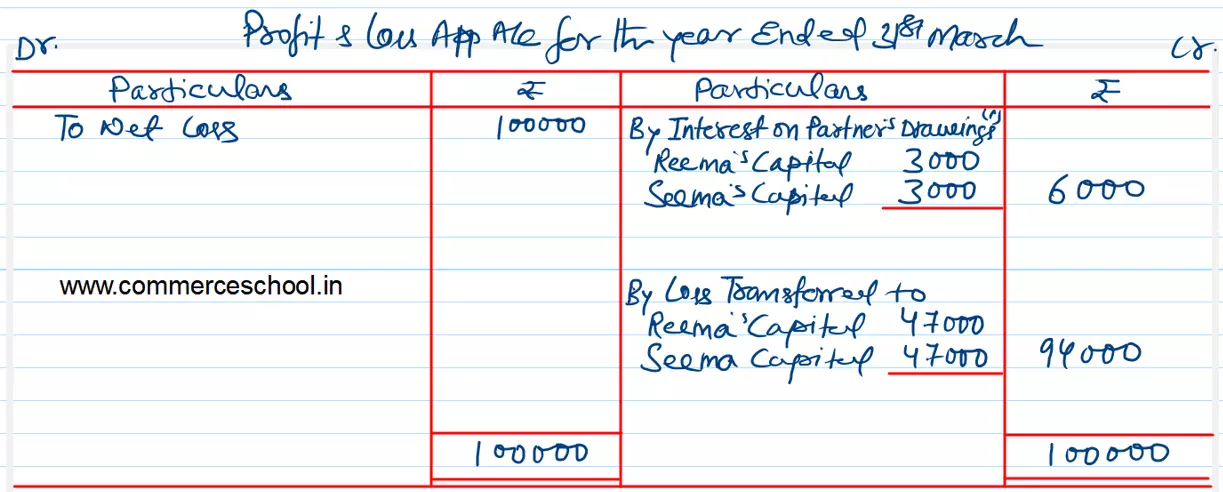 Profit & Loss App A/c for the year Ended 31st March
Dr. Cr.
Particulars ₹ Particulars ₹
To Net Loss 100000 By Interest on Partner's Drawings (1)
Reema's Capital 3000
Seema's Capital 3000 6000
www.commerceschool.in By Loss Transferred to
Reema's Capital 47000
Seema Capital 47000 94000
100000 100000